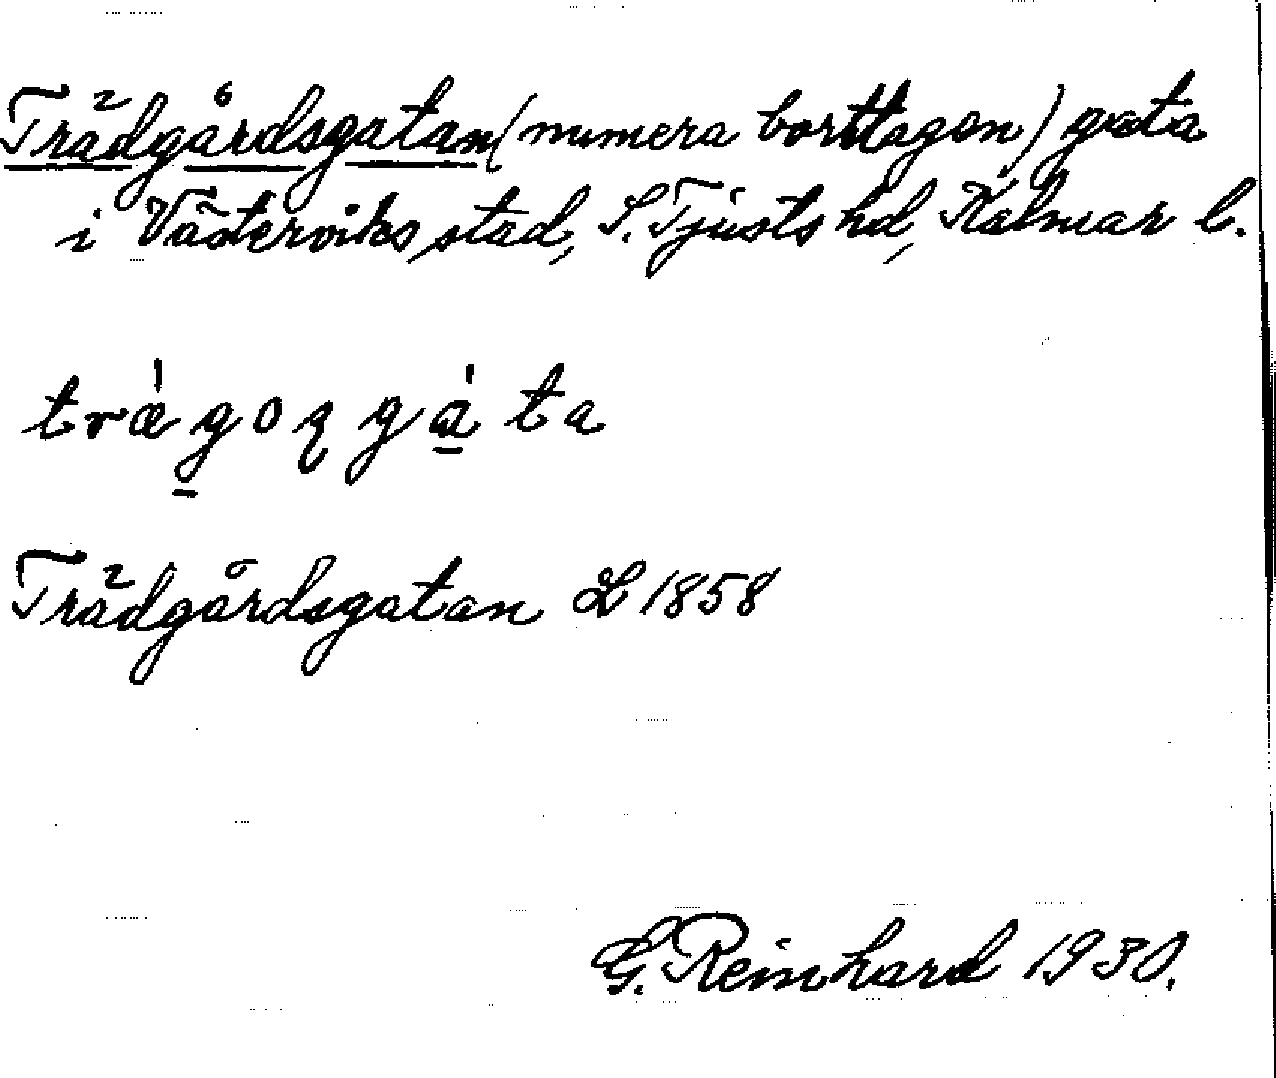 Trädgårdsgatan (numera borttagen) gata
i Västerviks stad, S. Tjusts hd, Kalmar l.
træ̀goqgàta
Trädgårdsgatan L 1858
G. Reinhard 1930.